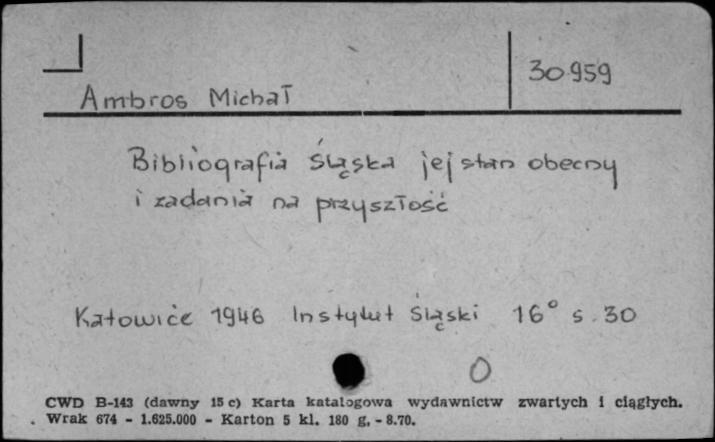 30959
Ambros Michał
Bibliografia śląska jej stan obecny
i zadania na przyszłość
Katowice 1946 Instytut Śląski 16° s. 30
CWD B-143 (dawny 15 c) Karta katalogowa wydawnictw zwartych i ciągłych.
Wrak 674 - 1.625.000 - Karton 5 kl. 180 g. - 8.70.